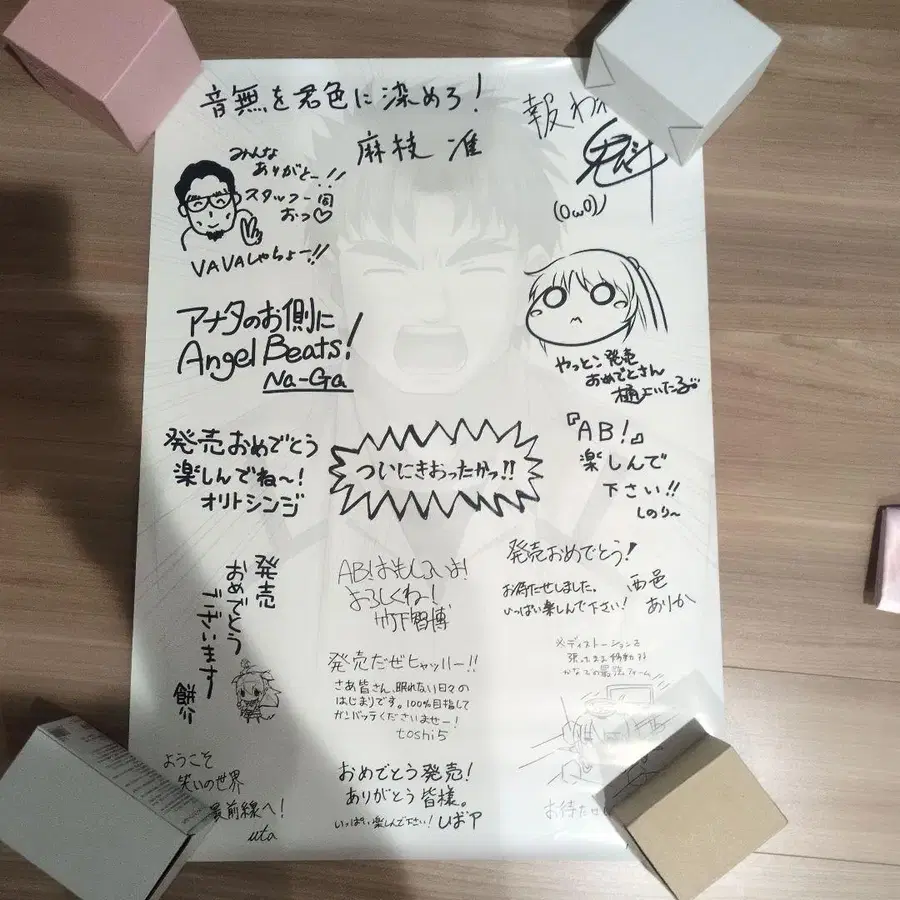 音無を君色に染めろ!
麻枝 准
報わ
魁
(OωO)ノ
みんな
ありがとー!!
スタッフ一同
おっ♡
VAVAしゃちょー!!
アナタのお側に
Angel Beats!
Na-Ga
やっとこ発売
おめでとさん
樋上いたる
発売おめでとう
楽しんでね〜!
オリトシンジ
ついにきおったかっ!!
『AB!』
楽しんで
下さい!!
しのり〜
発売
おめでとう
ございます
餅介
AB!おもしろいよ!
よろしくねー!
竹下智博
発売おめでとう!
お待たせしました。
いっぱい楽しんで下さい!
西邑
ありか
発売だぜヒャッハー!!
さあ皆さん、眠れない日々の
はじまりです。100%目指して
ガンバッテくださいませー!
toshi5
※ディストーションを
張ったまま移動する
かなでの最強フォーム
ようこそ
笑いの世界
最前線へ!
uta
おめでとう発売!
ありがとう 皆様。
いっぱい楽しんで下さい!
お待たせ